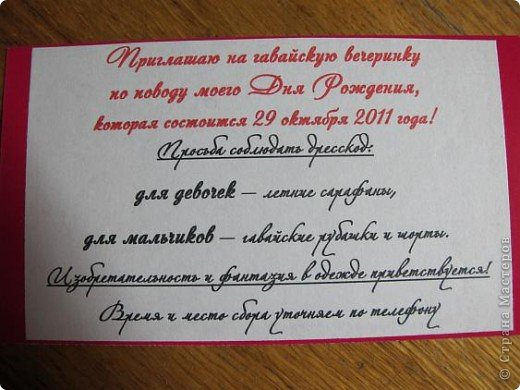 Приглашаю на гавайскую вечеринку
по поводу моего Дня Рождения,
которая состоится 29 октября 2011 года!
Просьба соблюдать дресскод:
для девочек – летние сарафаны,
для мальчиков – гавайские рубашки и шорты.
Изобретательность и фантазия в одежде приветствуется!
Время и место сбора уточняем по телефону
© Страна Мастеров